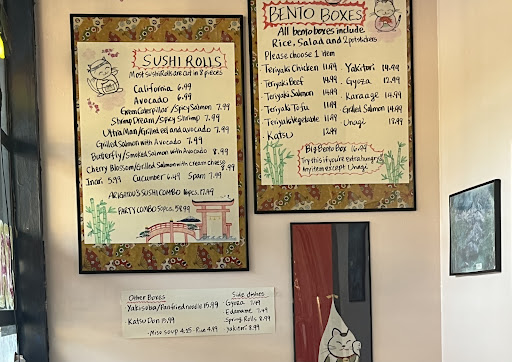 SUSHI ROLLS
Most sushi Rolls are cut in 8 pieces
California 6.99
Avocado 6.99
Green Caterpillar / Spicy Salmon 7.99
Shrimp Dream / Spicy Shrimp 7.99
Ultra Man / Grilled eel and avocado 7.99
Grilled Salmon with Avocado 7.99
Butterfly / Smoked Salmon with Avocado 8.99
Cherry Blossom / Grilled Salmon with cream cheese 8.99
Inari 5.99 Cucumber 6.49 Spam 7.99
SUSHI COMBO 16pcs. 17.99
PARTY COMBO 50pcs. 58.99
BENTO BOXES
All bento boxes include
Rice, Salad and 2 potstickers
Please choose 1 item
Teriyaki Chicken 11.99
Teriyaki Beef 14.99
Teriyaki Salmon 14.99
Teriyaki Tofu 11.99
Teriyaki Vegetable 11.99
Katsu 12.99
Yakitori 14.99
Gyoza 12.99
Karaage 14.99
Grilled Salmon 14.99
Unagi
Big Bento Box 16.99
Try this if you're extra hungry
Any item except Unagi
Other Boxes
Yakisoba / Pan fried noodle 15.99
Katsu Don 15.99
Miso soup 4.25 - Rice 4.99
Side dishes
Gyoza 7.99
Edamame 7.99
Spring Rolls 8.99
Yakitori 8.99